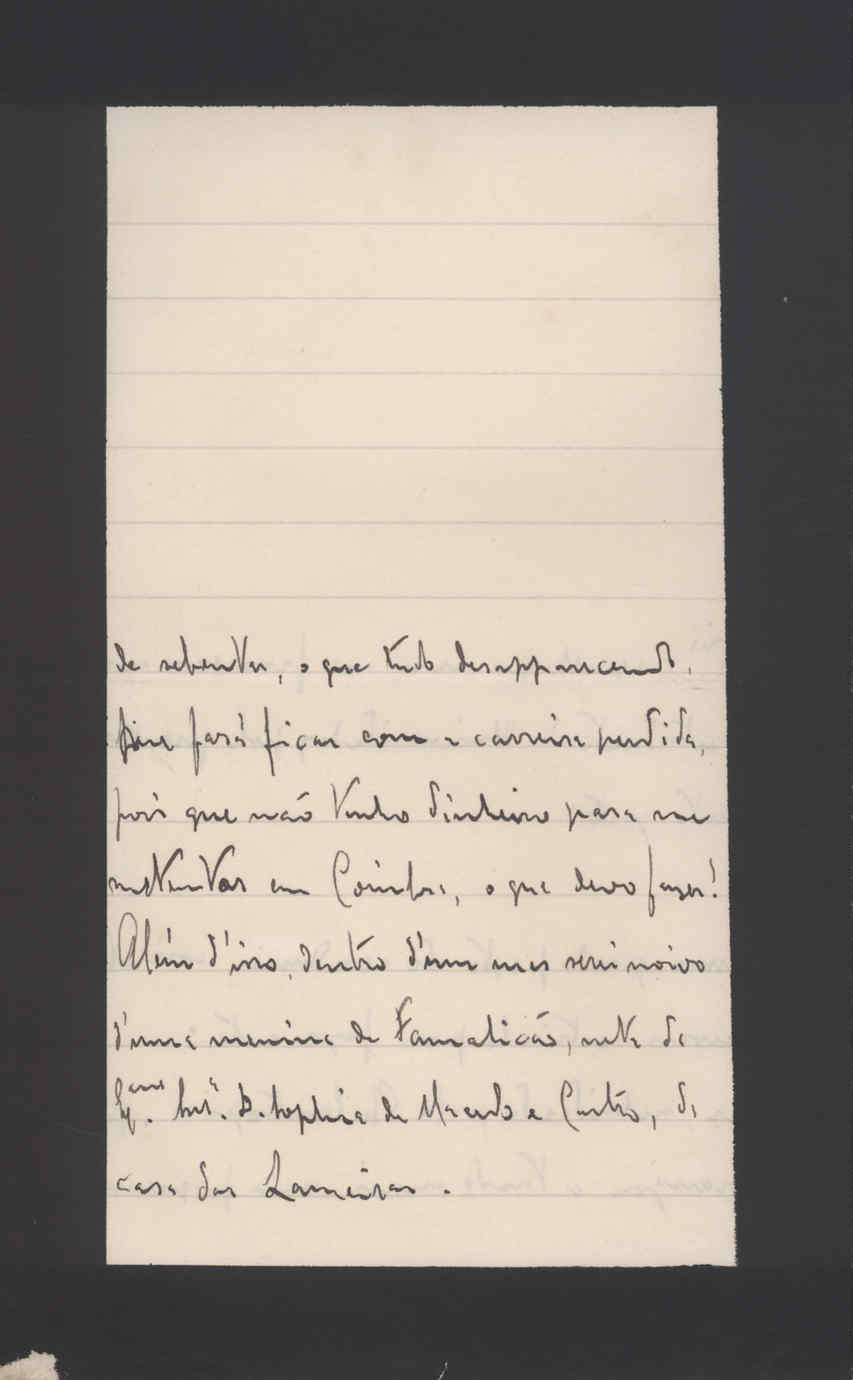 de sebentas, o que tudo desapparecendo,
fará ficar com a carreira perdida,
pois que não tenho dinheiro para me
sustentar em Coimbra, o que devo fazer!
Além d'isso, dentro d'um mes serei noivo
d'uma menina de Famalicão, neta da
Ex.ma Snr.a D. Sophia de Macedo e Castro, da
casa das Lameiras.